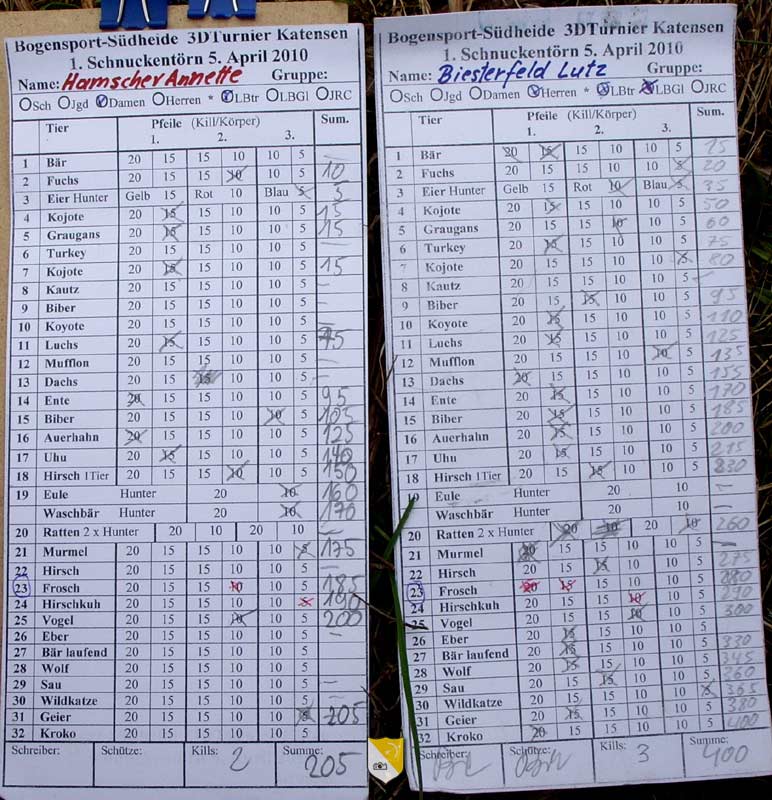 Bogensport-Südheide 3DTurnier Katensen
1. Schnuckentörn 5. April 2010
Name: Hamscher Annette Gruppe:
Sch Jgd Damen Herren * LBtr LBGl JRC
Tier Pfeile (Kill/Körper) Sum.
1. 2. 3.
1 Bär 20 15 15 10 10 5 –
2 Fuchs 20 15 15 10 10 5 10
3 Eier Hunter Gelb 15 Rot 10 Blau 5 5
4 Kojote 20 15 15 10 10 5 15
5 Graugans 20 15 15 10 10 5 15
6 Turkey 20 15 15 10 10 5 –
7 Kojote 20 15 15 10 10 5 15
8 Kautz 20 15 15 10 10 5 –
9 Biber 20 15 15 10 10 5 –
10 Koyote 20 15 15 10 10 5 –
11 Luchs 20 15 15 10 10 5
12 Mufflon 20 15 15 10 10 5 –
13 Dachs 20 15 15 10 10 5 –
14 Ente 20 15 15 10 10 5 95
15 Biber 20 15 15 10 10 5
16 Auerhahn 20 15 15 10 10 5 125
17 Uhu 20 15 15 10 10 5 140
18 Hirsch 1 Tier 20 15 15 10 10 5 150
19 Eule Hunter 20 10 160
Waschbär Hunter 20 10 170
20 Ratten 2 x Hunter 20 10 20 10 –
21 Murmel 20 15 15 10 10 5 175
22 Hirsch 20 15 15 10 10 5 –
23 Frosch 20 15 15 10 10 5 185
24 Hirschkuh 20 15 15 10 10 5 190
25 Vogel 20 15 15 10 10 5 200
26 Eber 20 15 15 10 10 5 –
27 Bär laufend 20 15 15 10 10 5
28 Wolf 20 15 15 10 10 5
29 Sau 20 15 15 10 10 5 –
30 Wildkatze 20 15 15 10 10 5 –
31 Geier 20 15 15 10 10 5 205
32 Kroko 20 15 15 10 10 5
Schreiber: Schütze: Kills: 2 Summe: 205
Bogensport-Südheide 3DTurnier Katensen
1. Schnuckentörn 5. April 2010
Name: Biesterfeld Lutz Gruppe:
Sch Jgd Damen Herren * LBtr LBGl JRC
Tier Pfeile (Kill/Körper) Sum.
1. 2. 3.
1 Bär 20 15 15 10 10 5 15
2 Fuchs 20 15 15 10 10 5 20
3 Eier Hunter Gelb 15 Rot 10 Blau 5 35
4 Kojote 20 15 15 10 10 5 50
5 Graugans 20 15 15 10 10 5 60
6 Turkey 20 15 15 10 10 5 75
7 Kojote 20 15 15 10 10 5 80
8 Kautz 20 15 15 10 10 5 –
9 Biber 20 15 15 10 10 5 95
10 Koyote 20 15 15 10 10 5 110
11 Luchs 20 15 15 10 10 5 125
12 Mufflon 20 15 15 10 10 5 135
13 Dachs 20 15 15 10 10 5 155
14 Ente 20 15 15 10 10 5 170
15 Biber 20 15 15 10 10 5 185
16 Auerhahn 20 15 15 10 10 5 200
17 Uhu 20 15 15 10 10 5 215
18 Hirsch 1 Tier 20 15 15 10 10 5
19 Eule Hunter 20 10 –
Waschbär Hunter 20 10 –
20 Ratten 2 x Hunter 20 10 20 10 260
21 Murmel 20 15 15 10 10 5 –
22 Hirsch 20 15 15 10 10 5 275
23 Frosch 20 15 15 10 10 5 280
24 Hirschkuh 20 15 15 10 10 5 290
25 Vogel 20 15 15 10 10 5 300
26 Eber 20 15 15 10 10 5
27 Bär laufend 20 15 15 10 10 5 330
28 Wolf 20 15 15 10 10 5 345
29 Sau 20 15 15 10 10 5 360
30 Wildkatze 20 15 15 10 10 5 365
31 Geier 20 15 15 10 10 5 380
32 Kroko 20 15 15 10 10 5 400
Schreiber: Schütze: Kills: 3 Summe: 400